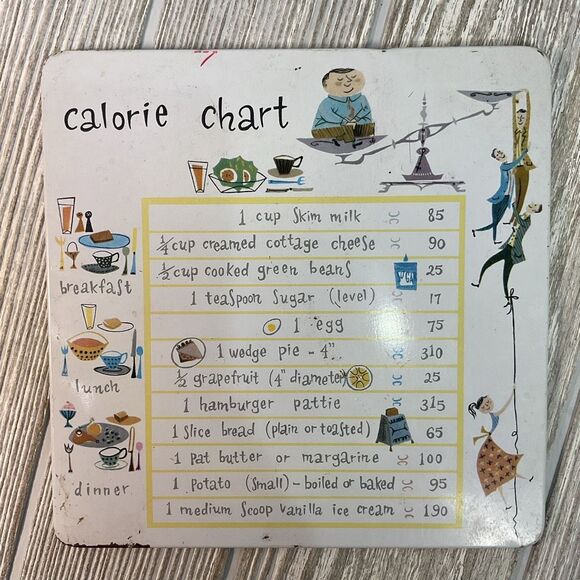 calorie chart
1 cup skim milk 85
¼ cup creamed cottage cheese 90
½ cup cooked green beans 25
1 teaspoon sugar (level) 17
1 egg 75
1 wedge pie - 4" 310
½ grapefruit (4" diameter) 25
1 hamburger pattie 315
1 slice bread (plain or toasted) 65
1 pat butter or margarine 100
1 potato (small) - boiled or baked 95
1 medium scoop vanilla ice cream 190
breakfast
lunch
dinner